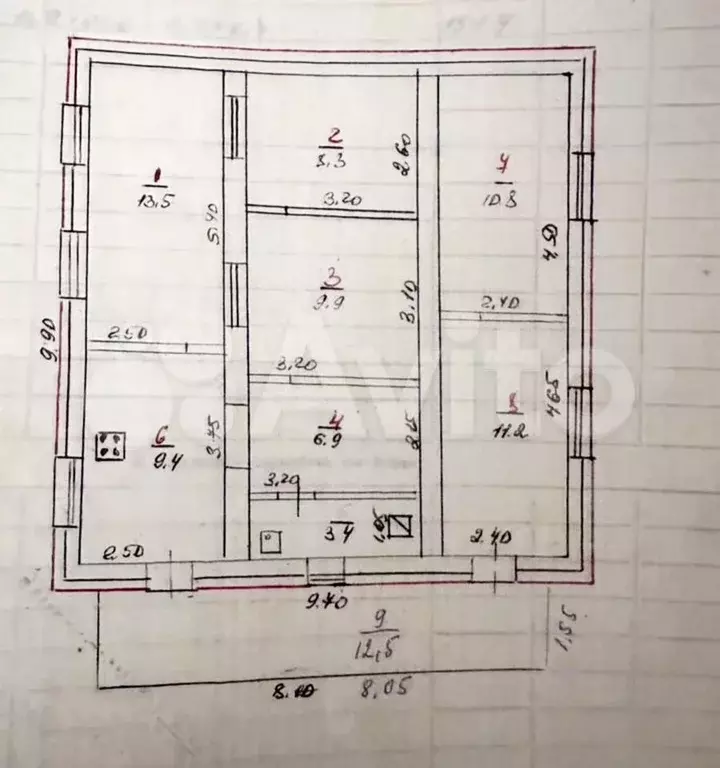 1
13.5
5.40
2
8.3
2.60
3.20
7
10.8
4.50
3
9.9
3.10
2.40
9.90
2.50
3.20
6
9.4
3.75
4
6.9
2.15
8
11.2
4.65
3.20
3.4
1.05
2.50
2.40
9.70
9
12,5
1,55
8.05
Avito